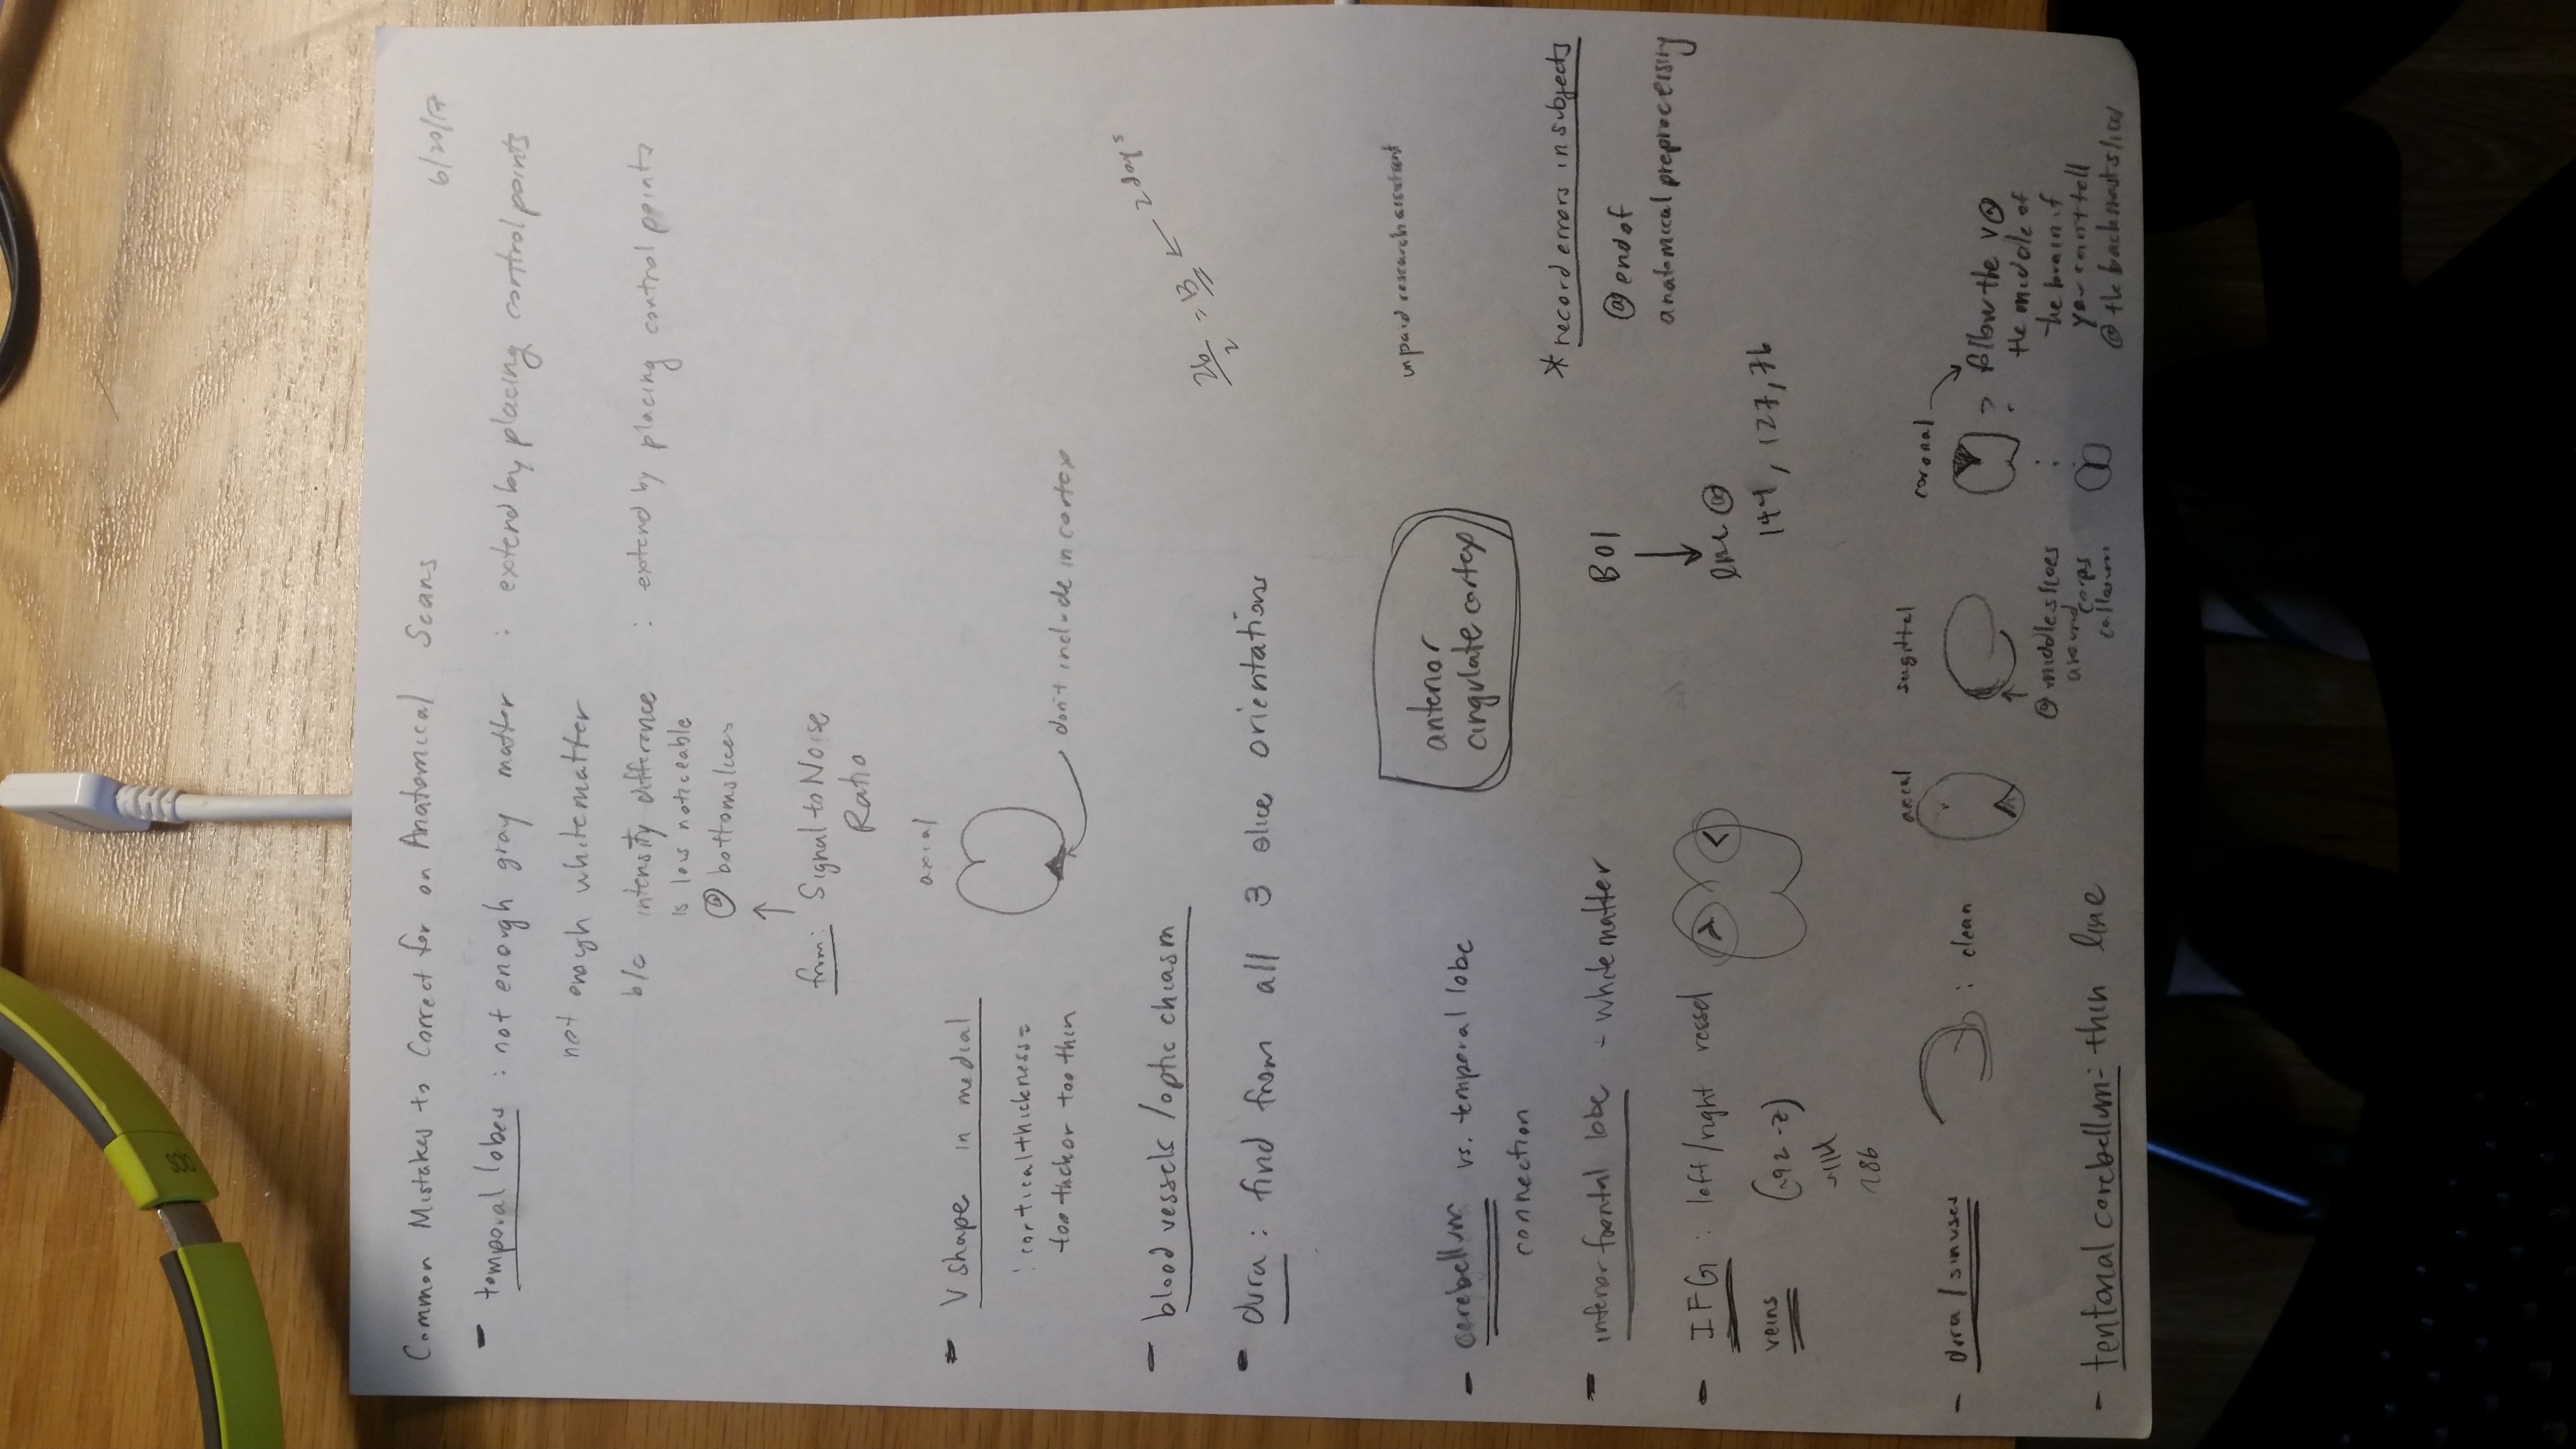 Common Mistakes to Correct for on Anatomical Scans
6/20/17
- temporal lobes : not enough gray matter : extend by placing control points
not enough white matter
b/c intensity difference : extend by placing control points
is less noticeable
@ bottom slices
↑
from: Signal to Noise
Ratio
- V shape in medial
axial
: cortical thickness =
too thick or too thin
don't include in cortex
- blood vessels / optic chiasm
26/2 = 13 ← 2 days
- dura : find from all 3 slice orientations
unpaid research assistant
anterior
cingulate cortex
- cerebellum vs. temporal lobe
connection
* record errors in subjects
@ end of
anatomical preprocessing
- inferior frontal lobe - white matter
B01
↓
line @
144, 127, 76
- IFG : left/right vessel
veins (~92 -z)
~114
~86
- dura / sinuses : clean
axial
sagittal
@ middle slices
around corps
callosum
coronal
: follow the v @
the middle of
the brain if
you can't tell
@ the back most slices
- tentorial cerebellum: thin line